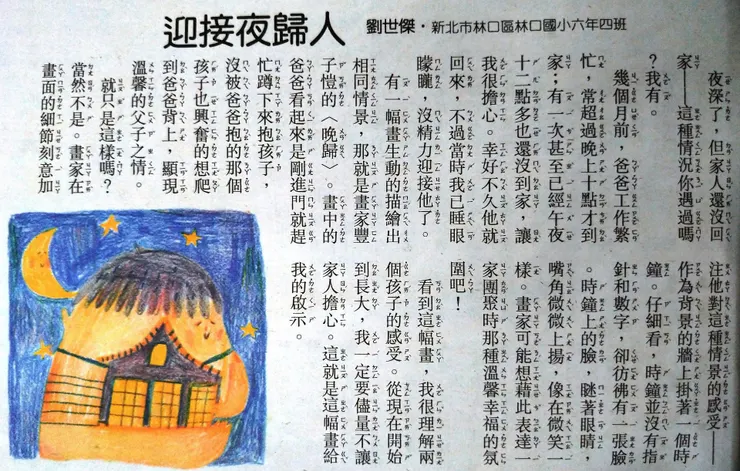 迎接夜歸人
劉世傑・新北市林口區林口國小六年四班
夜深了,但家人還沒回
家——這種情況你遇過嗎
?我有。
幾個月前,爸爸工作繁
忙,常超過晚上十點才到
家;有一次甚至已經午夜
十二點多也還沒到家,讓
我很擔心。幸好不久他就
回來,不過當時我已睡眼
矇矓,沒精力迎接他了。
有一幅畫生動的描繪出
相同情景,那就是畫家豐
子愷的〈晚歸〉。畫中的
爸爸看起來是剛進門就趕
忙蹲下來抱孩子,
沒被爸爸抱的那個
孩子也興奮的想爬
到爸爸背上,顯現
溫馨的父子之情。
就只是這樣嗎?
當然不是。畫家在
畫面的細節刻意加
注他對這種情景的感受——
作為背景的牆上掛著一個時
鐘。仔細看,時鐘並沒有指
針和數字,卻彷彿有一張臉
。時鐘上的臉,瞇著眼睛,
嘴角微微上揚,像在微笑一
樣。畫家可能想藉此表達一
家團聚時那種溫馨幸福的氛
圍吧!
看到這幅畫,我很理解兩
個孩子的感受。從現在開始
到長大,我一定要儘量不讓
家人擔心。這就是這幅畫給
我的啟示。